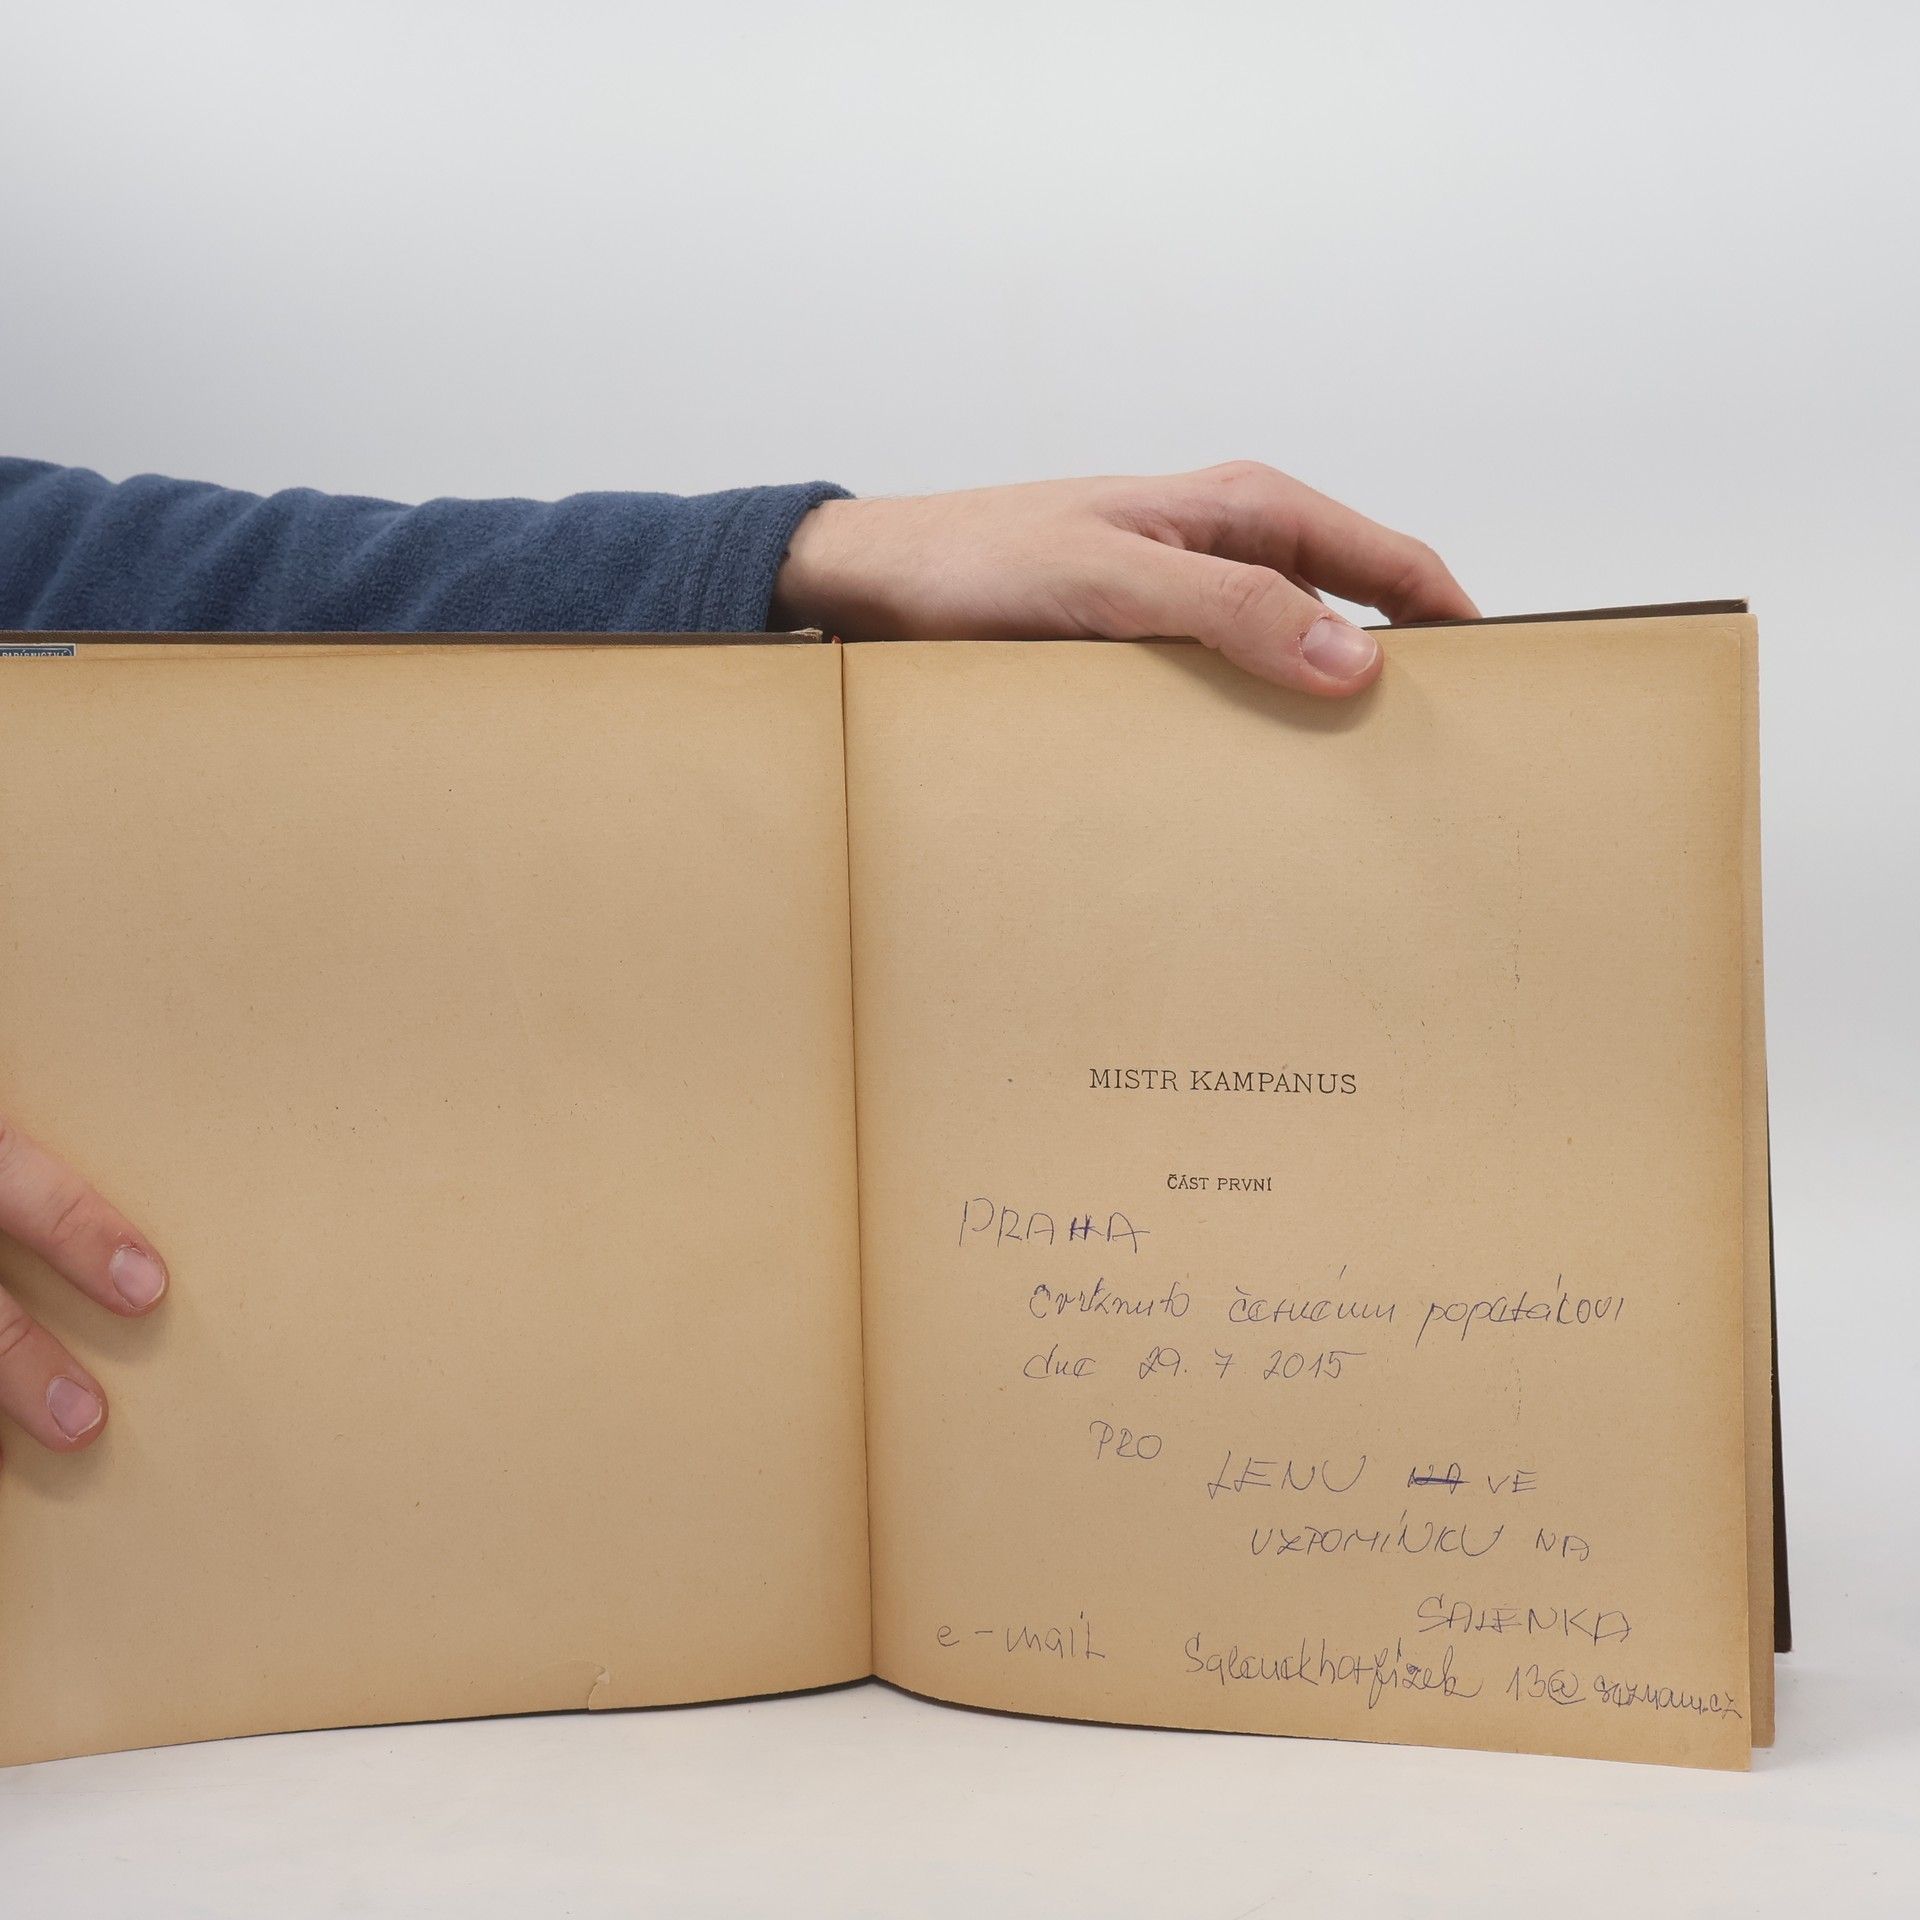 PAPÍRNICTVÍ
MISTR KAMPANUS
ČÁST PRVNÍ
PRAHA
čvrknuto černému popeťákovi
dne 29. 7 2015
PRO
LENU VE
VZPOMÍNKU NA
SALENKA
e-mail
13@seznam.cz